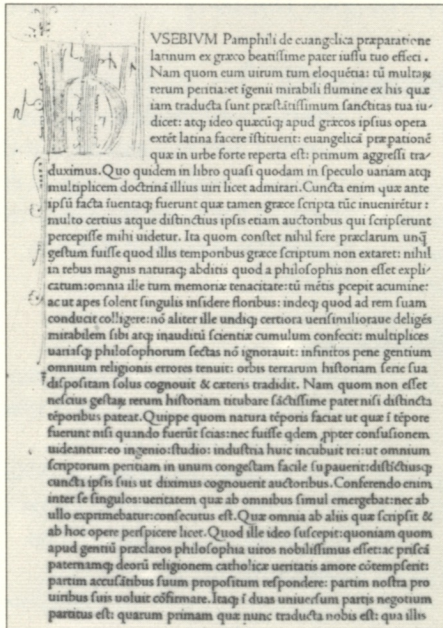 VSEBIVM Pamphili de euangelica præparatione
latinum ex græco beatissime pater iussu tuo effeci.
Nam quom eum uirum tum eloquētia: tū multaꝝ
rerum peritia: et īgenii mirabili flumine ex his quæ
iam traducta sunt præstātissimum sanctitas tua iu-
dicet: atq; ideo quæcūq; apud græcos ipsius opera
extēt latina facere īstituerit: euangelicā præpationē
quæ in urbe forte reperta est: primum aggressi tra-
duximus. Quo quidem in libro quasi quodam in speculo uariam atq;
multiplicem doctrinā illius uiri licet admirari. Cuncta enim quæ ante
ipsū facta īuentaq; fuerunt quæ tamen græce scripta tūc inuenirētur:
multo certius atque distinctius ipsis etiam auctoribus qui scripserunt
percepisse mihi uidetur. Ita quom constet nihil fere præclarum unq̄
gestum fuisse quod illis temporibus græce scriptum non extaret: nihil
in rebus magnis naturaq; abditis quod a philosophis non esset expli-
catum: omnia ille tum memoriæ tenacitate: tū mētis pcepit acumine:
ac ut apes solent singulis insidere floribus: indeq; quod ad rem suam
conducit colligere: nō aliter ille undiq; certiora uerisimilioraue deligēs
mirabilem sibi atq; inauditū scientiæ cumulum confecit: multiplices
uariasq; philosophorum sectas nō ignorauit: infinitos pene gentium
omnium religionis errores tenuit: orbis terrarum historiam serie sua
dispositam solus cognouit & cæteris tradidit. Nam quom non esset
nescius gestaꝝ rerum historiam titubare sāctissime pater nisi distincta
tēporibus pateat. Quippe quom natura tēporis faciat ut quæ ī tēpore
fuerunt nisi quando fuerūt scias: nec fuisse qdem ꝓpter confusionem
uideantur: eo ingenio: studio: industria huic incubuit rei: ut omnium
scriptorum peritiam in unum congestam facile supauerit: distīctiusq;
cuncta ipsis suis ut diximus cognouerit auctoribus. Conferendo enim
inter se singulos: ueritatem quæ ab omnibus simul emergebat: nec ab
ullo exprimebatur: consecutus est. Quæ omnia ab aliis quæ scripsit &
ab hoc opere perspicere licet. Quod ille ideo suscepit: quoniam quom
apud gentiū præclaros philosophia uiros nobilissimus esset: ac priscā
paternamq; deorū religionem catholicæ ueritatis amore cōtempserit:
partim accusātibus suum propositum respondere: partim nostra pro
uiribus suis uoluit cōfirmare. Itaq; ī duas uniuersum partis negotium
partitus est: quarum primam quæ nunc traducta nobis est: qua illis